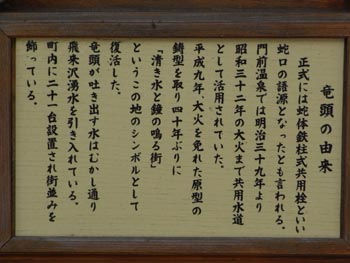 竜頭の由来
正式には蛇体鉄柱式共用栓といい
蛇口の語源となったとも言われる。
門前温泉では明治三十九年より
昭和三十二年の大火まで共用水道
として活用されていた。
平成九年、大火を免れた原型の
鋳型を取り四十年ぶりに
「清き水と鐘の鳴る街」
というこの地のシンボルとして
復活した。
竜頭が吐き出す水はむかし通り
飛来沢湧水を引き入れている。
町内に二十一台設置され街並みを
飾っている。